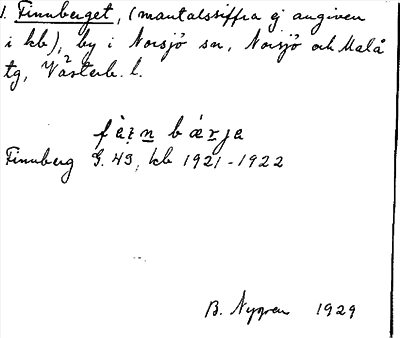 1. Finnberget, (mantalssiffra ej angiven
i kb), by i Norsjö sn, Norsjö och Malå
tg, Västerb. l.
fàɪn bærja
Finnberg G. 43, kb 1921-1922
B. Nygren 1929